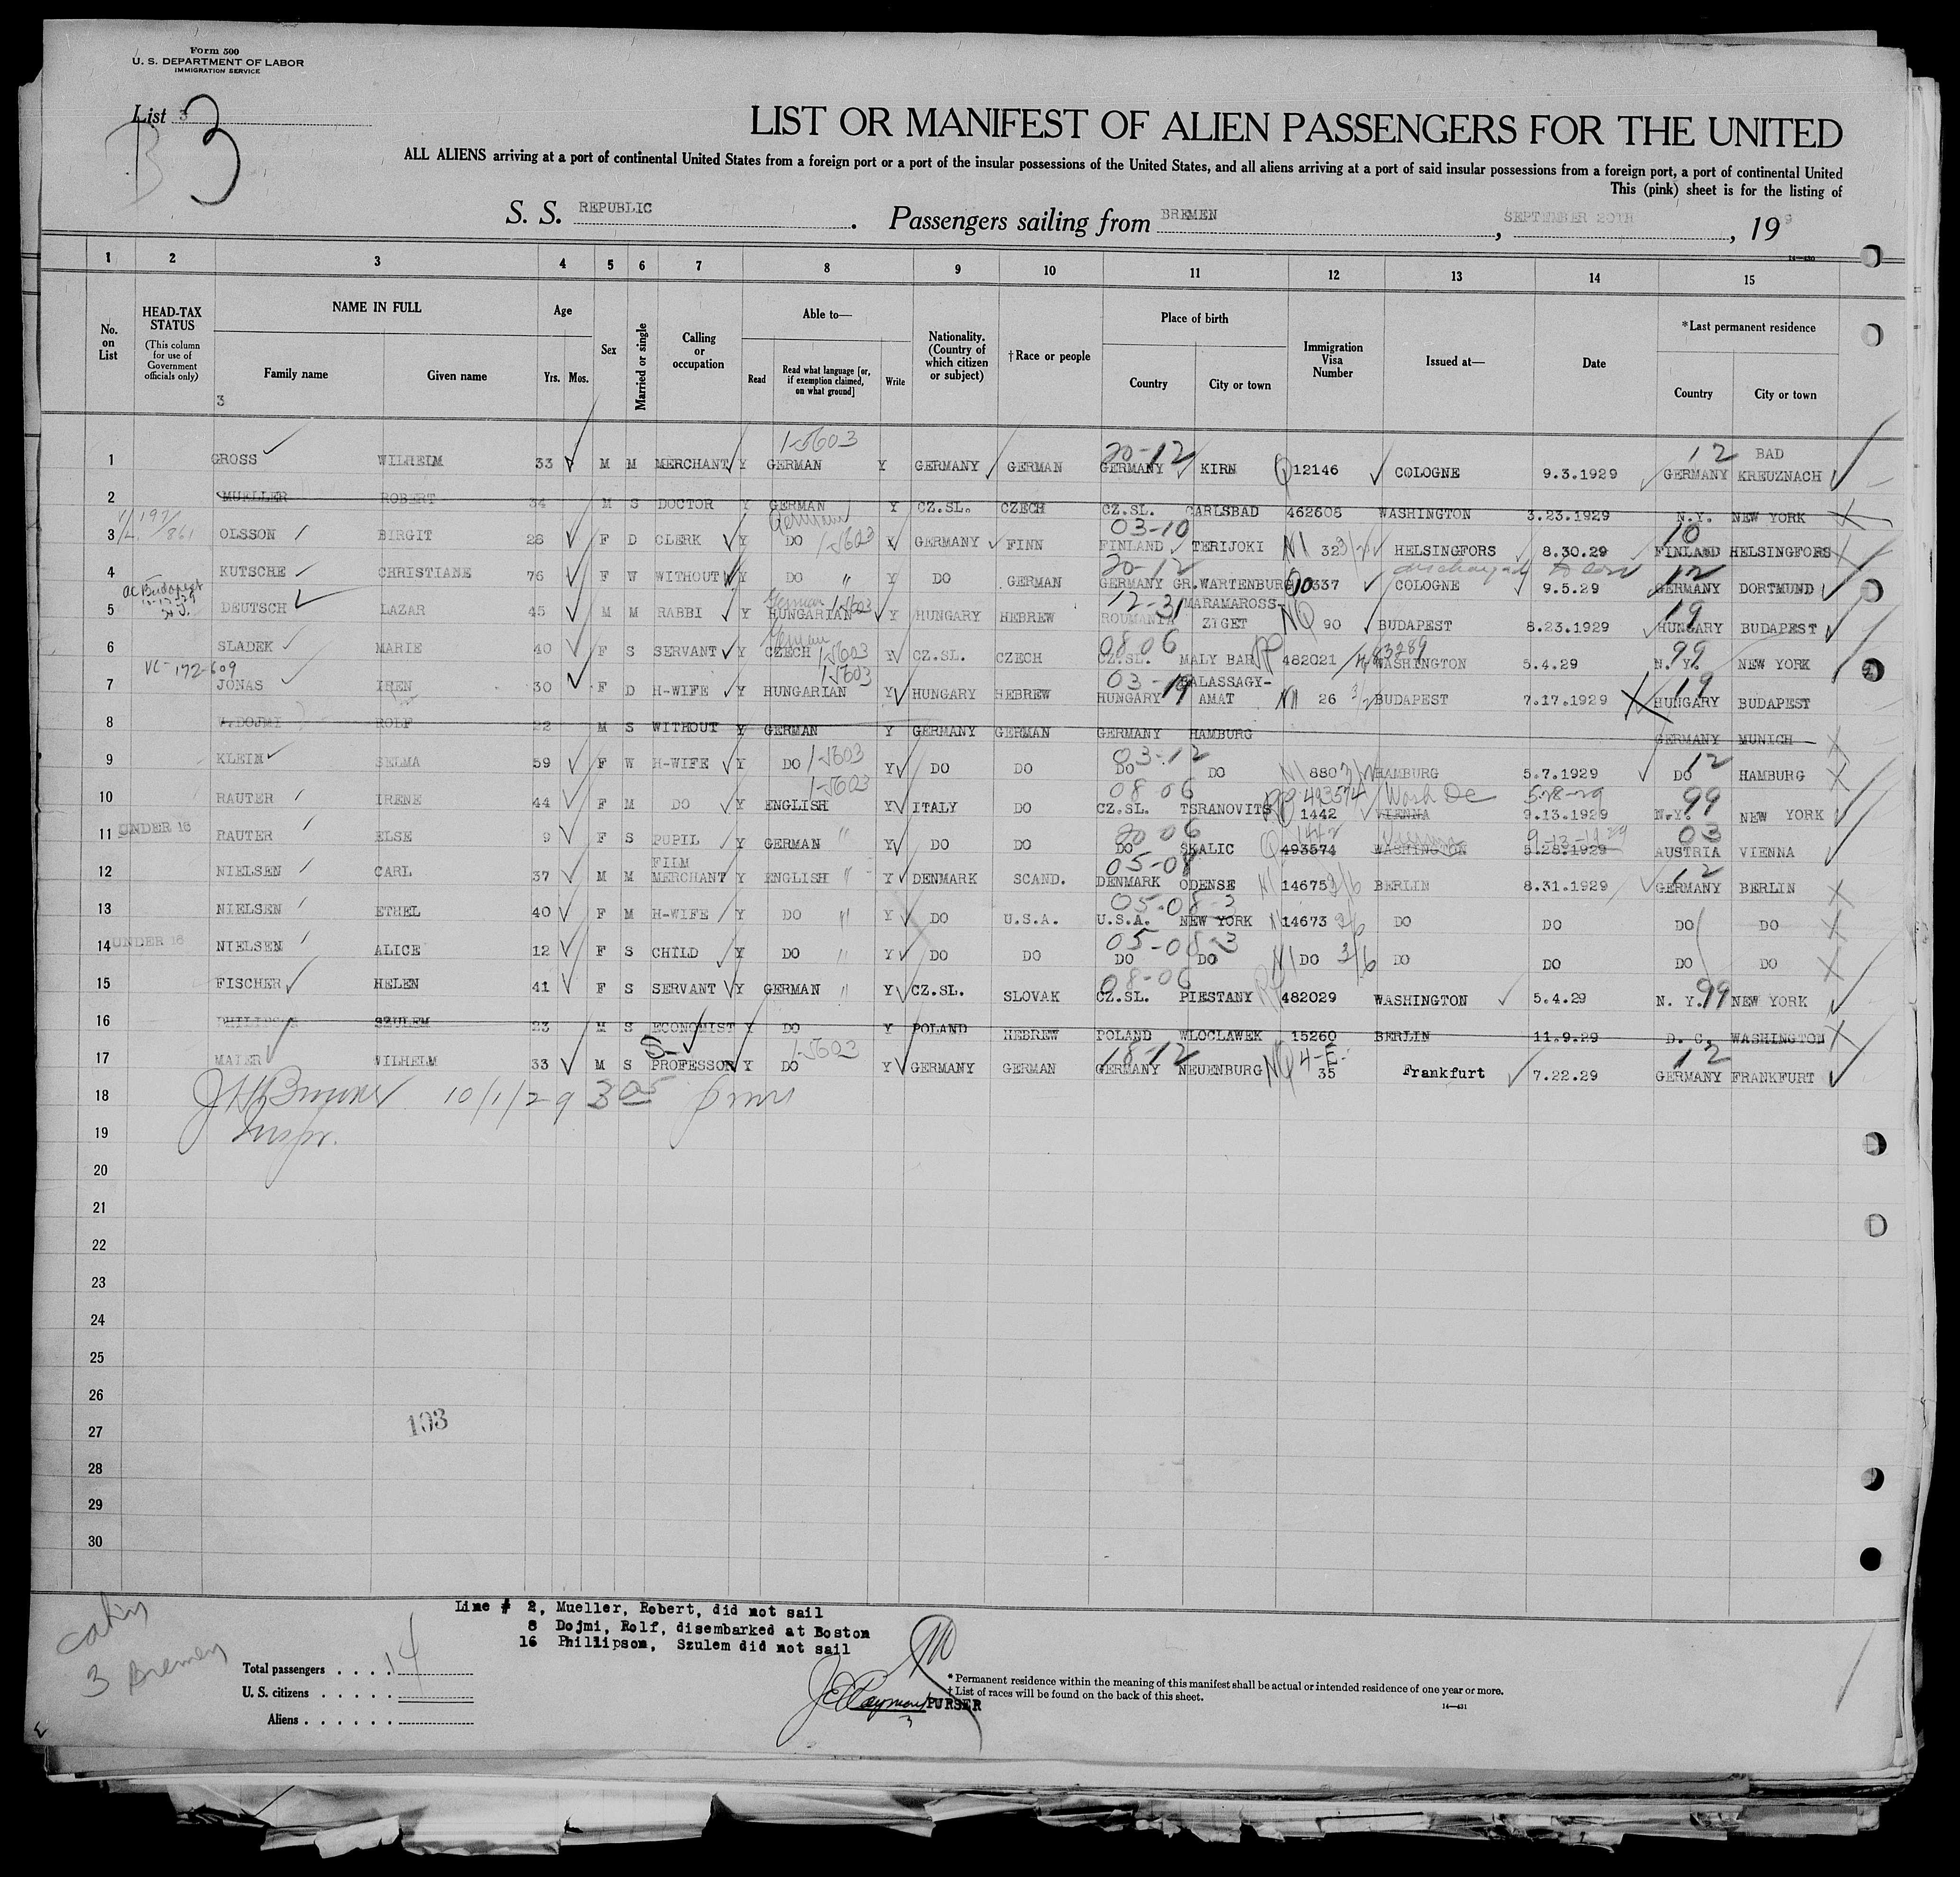 Form 500
U. S. DEPARTMENT OF LABOR
IMMIGRATION SERVICE
List 3
B 3
LIST OR MANIFEST OF ALIEN PASSENGERS FOR THE UNITED
ALL ALIENS arriving at a port of continental United States from a foreign port or a port of the insular possessions of the United States, and all aliens arriving at a port of said insular possessions from a foreign port, a port of continental United
This (pink) sheet is for the listing of
S. S. REPUBLIC. Passengers sailing from BREMEN, SEPTEMBER 20TH, 19 9
14—430
1 2 3 4 5 6 7 8 9 10 11 12 13 14 15
No. on List
HEAD-TAX STATUS
(This column for use of Government officials only)
NAME IN FULL
Family name Given name
3
Age
Yrs. Mos.
Sex
Married or single
Calling or occupation
Able to—
Read
Read what language [or, if exemption claimed, on what ground]
Write
Nationality. (Country of which citizen or subject)
†Race or people
Place of birth
Country City or town
Immigration Visa Number
Issued at—
Date
*Last permanent residence
Country City or town
1-5603 20-12 12
1 GROSS WILHELM 33 M M MERCHANT Y GERMAN Y GERMANY GERMAN GERMANY KIRN Q 12146 COLOGNE 9.3.1929 GERMANY BAD KREUZNACH
2 MUELLER ROBERT 34 M S DOCTOR Y GERMAN Y CZ.SL. CZECH CZ.SL. CARLSBAD 462608 WASHINGTON 3.23.1929 N.Y. NEW YORK
German 1-5603 03-10 10
3 OLSSON BIRGIT 28 F D CLERK Y DO Y GERMANY FINN FINLAND TERIJOKI NI 32 HELSINGFORS 8.30.29 FINLAND HELSINGFORS
20-12 12
4 KUTSCHE CHRISTIANE 76 F W WITHOUT Y DO " Y DO GERMAN GERMANY GR.WARTENBURG 337 COLOGNE 9.5.29 GERMANY DORTMUND
German 1-5603 12-31 19
5 DEUTSCH LAZAR 45 M M RABBI Y HUNGARIAN Y HUNGARY HEBREW ROUMANIA MARAMAROSS-ZIGET NQ 90 BUDAPEST 8.23.1929 HUNGARY BUDAPEST
German 1-5603 08 06 483289 99
6 SLADEK MARIE 40 F S SERVANT Y CZECH Y CZ.SL. CZECH CZ.SL. MALY BAR RP 482021 WASHINGTON 5.4.29 N.Y. NEW YORK
VC-172-609 1-5603 03-19 19
7 JONAS IREN 30 F D H-WIFE Y HUNGARIAN Y HUNGARY HEBREW HUNGARY BALASSAGY-AMAT NI 26 BUDAPEST 7.17.1929 HUNGARY BUDAPEST
8 V.DOJMI ROLF 22 M S WITHOUT Y GERMAN Y GERMANY GERMAN GERMANY HAMBURG GERMANY MUNICH
1-5603 03-12 12
9 KLEIN SELMA 59 F W H-WIFE Y DO Y DO DO DO DO NI 880 HAMBURG 5.7.1929 DO HAMBURG
1-5603 08 06 RP 493574 Wash DC 5-28-29 99
10 RAUTER IRENE 44 F M DO Y ENGLISH Y ITALY DO CZ.SL. TSRANOVITS 1442 VIENNA 9.13.1929 N.Y. NEW YORK
20 06 1442 Vienna 9-13-1929 03
11 UNDER 16 RAUTER ELSE 9 F S PUPIL Y GERMAN " Y DO DO DO SKALIC Q 493574 WASHINGTON 5.28.1929 AUSTRIA VIENNA
05-08 12
12 NIELSEN CARL 37 M M FILM MERCHANT Y ENGLISH " Y DENMARK SCAND. DENMARK ODENSE NI 14675 3/6 BERLIN 8.31.1929 GERMANY BERLIN
05-08-3
13 NIELSEN ETHEL 40 F M H-WIFE Y DO " Y DO U.S.A. U.S.A. NEW YORK NI 14673 3/6 DO DO DO DO
05-08-3
14 UNDER 16 NIELSEN ALICE 12 F S CHILD Y DO " Y DO DO DO DO NI DO 3/6 DO DO DO DO
08-06 99
15 FISCHER HELEN 41 F S SERVANT Y GERMAN " Y CZ.SL. SLOVAK CZ.SL. PIESTANY RP 482029 WASHINGTON 5.4.29 N. Y. NEW YORK
16 PHILIPSON SZULEM 23 M S ECONOMIST Y DO Y POLAND HEBREW POLAND WLOCLAWEK 15260 BERLIN 11.9.29 D. C. WASHINGTON
1-5603 18-12 4-E. 12
17 MAIER WILHELM 33 M S PROFESSOR Y DO Y GERMANY GERMAN GERMANY NEUENBURG NQ 35 Frankfurt 7.22.29 GERMANY FRANKFURT
18 10/1/29 305
19 Inspr.
20
21
22
23
24
25
26
27
103
28
29
30
Line # 2, Mueller, Robert, did not sail
8 Dojmi, Rolf, disembarked at Boston
16 Phillipson, Szulem did not sail
Cabin
3 Bremen
Total passengers . . . . 14
U. S. citizens . . . . .
Aliens . . . . . .
PURSER
3
* Permanent residence within the meaning of this manifest shall be actual or intended residence of one year or more.
† List of races will be found on the back of this sheet.
14—431